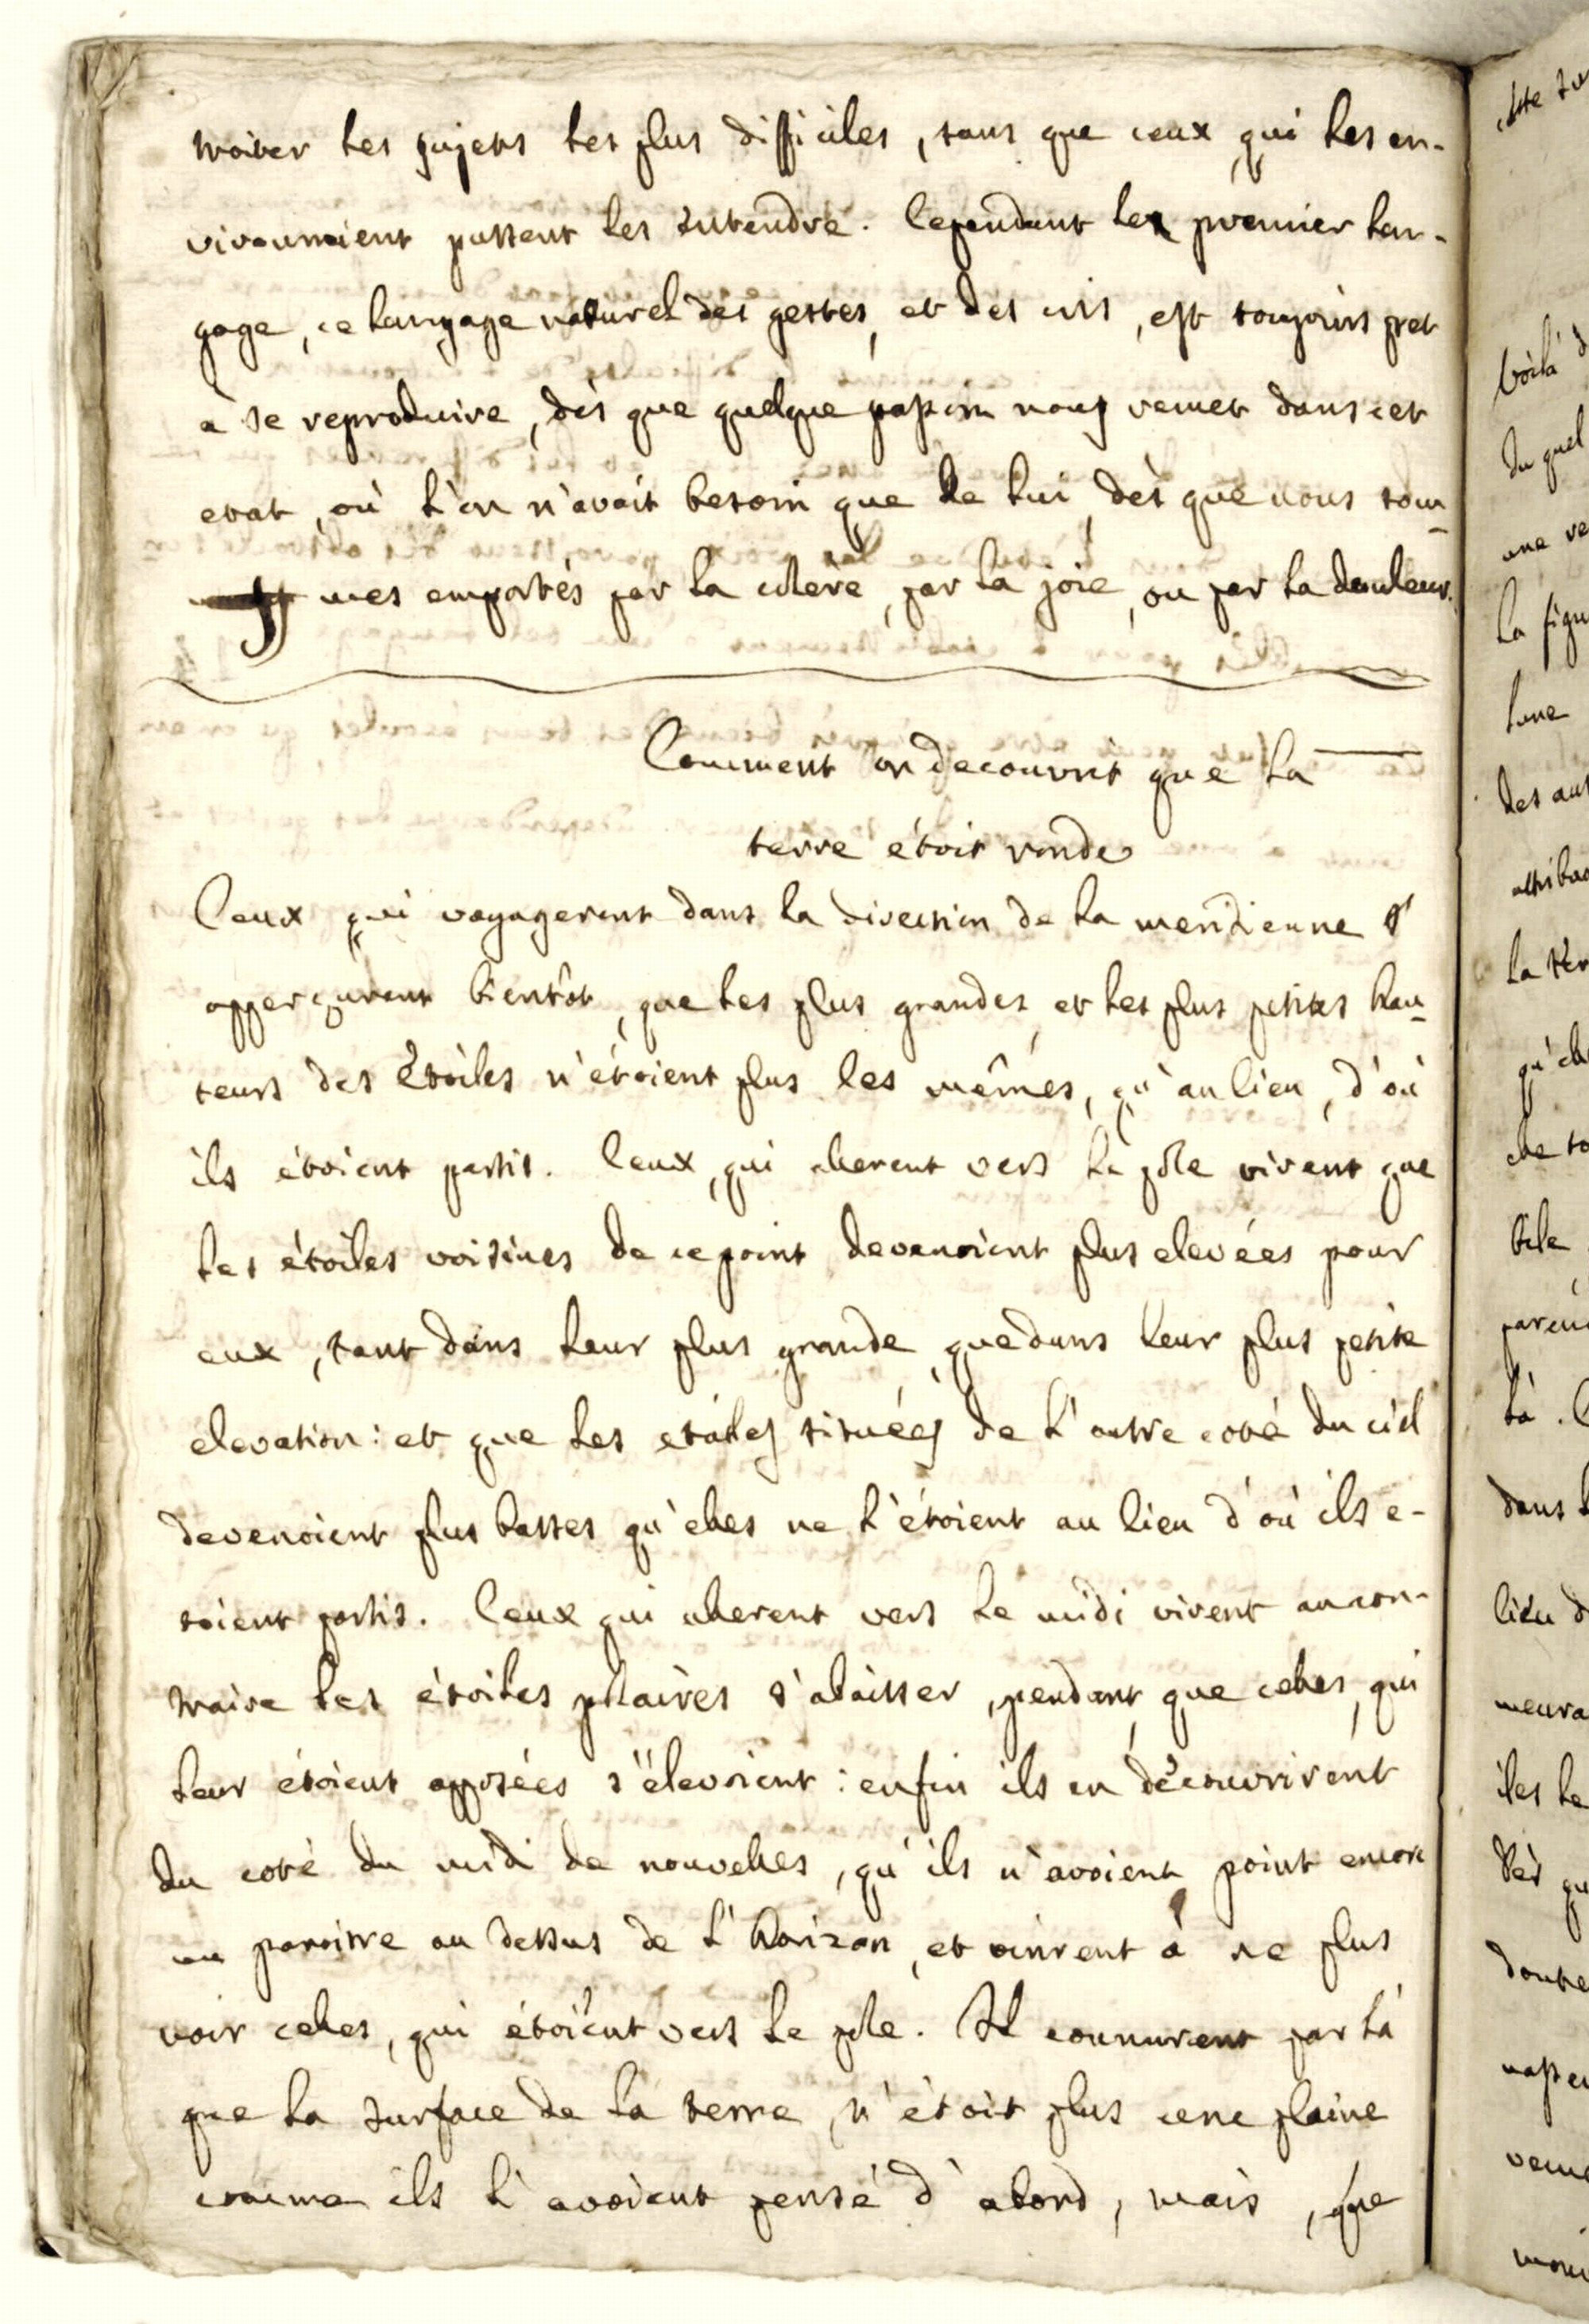 traiter les sujets les plus difficiles, sans que ceux, qui les en-
vironnoient pussent les entendre. Cependant le premier lan-
gage, ce langage naturel des gestes, et des cris, est toujours pret
à se reproduire, dès que quelque passion nous remet dans cet
etat, où l'on n'avait besoin que de lui, dès que nous som-
mes emportés par la colère, par la joie, ou par la douleur.
Comment on decouvrit que la
terre étoit ronde
Ceux qui voyagerent dans la direction de la meridienne s'
apperçurent bientôt, que les plus grandes, et les plus petites hau-
teurs des Etoiles n'étoient plus les mêmes, qu'au lieu, d'où
ils étoient partis. Ceux, qui allerent vers le pôle virent que
les étoiles voisines de ce point devenoient plus elevées pour
eux, tant dans leur plus grande, que dans leur plus petite
elevation: et que les etoiles situées de l'autre coté du ciel
devenoient plus basses qu'elles ne l'étoient au lieu d'où ils e-
toient partis. Ceux qui allerent vers le midi virent au con-
traire les étoiles polaires s'abaisser, pendant, que celles, qui
leur étoient opposées s'élevoient: enfin ils en découvrirent
du coté du midi de nouvelles, qu'ils n'avoient point encore
vu paroitre au dessus de l'horizon, et vinrent à ne plus
voir celles, qui étoient vers le pole. Il connurent par là
que la surface de la terre, n'étoit plus une plaine
comme ils l'avoient pensé d'abord, mais, que
Voilà
du quel
une
la
lune
des
la
dans
lieu